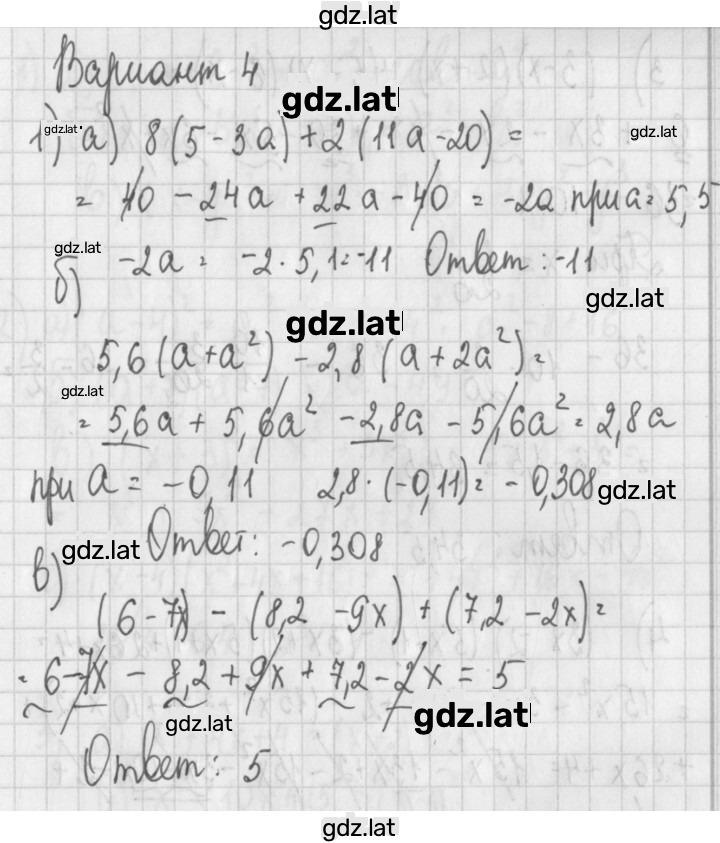 gdz.lat
Вариант 4
gdz.lat
1) gdz.lat а) 8(5-3а)+2(11а-20)= gdz.lat
= 40 - 24а + 22а - 40 = -2а при а = 5,5
gdz.lat
-2а = -2·5,1=-11 Ответ: -11
б) gdz.lat
gdz.lat
5,6(а+а²) - 2,8(а+2а²)=
gdz.lat
= 5,6а + 5,6а² - 2,8а - 5,6а² = 2,8а
при а = -0,11 2,8·(-0,11)= -0,308 gdz.lat
gdz.lat Ответ: -0,308
в)
(6-7x) - (8,2 -9x) + (7,2 -2x)=
= 6-7x - 8,2 + 9x + 7,2 - 2x = 5
gdz.lat gdz.lat
Ответ: 5
gdz.lat